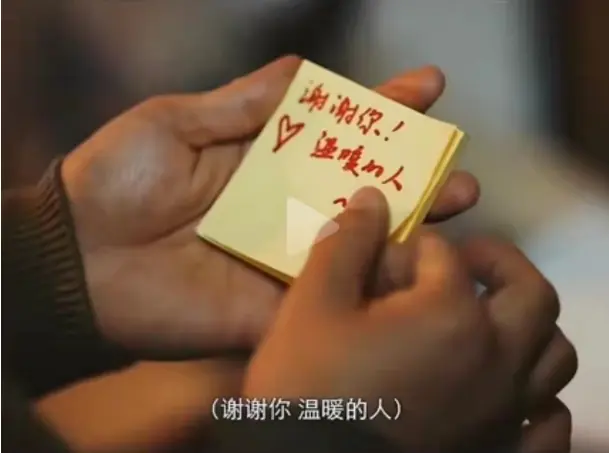 谢谢你!
温暖的人
~
(谢谢你 温暖的人)